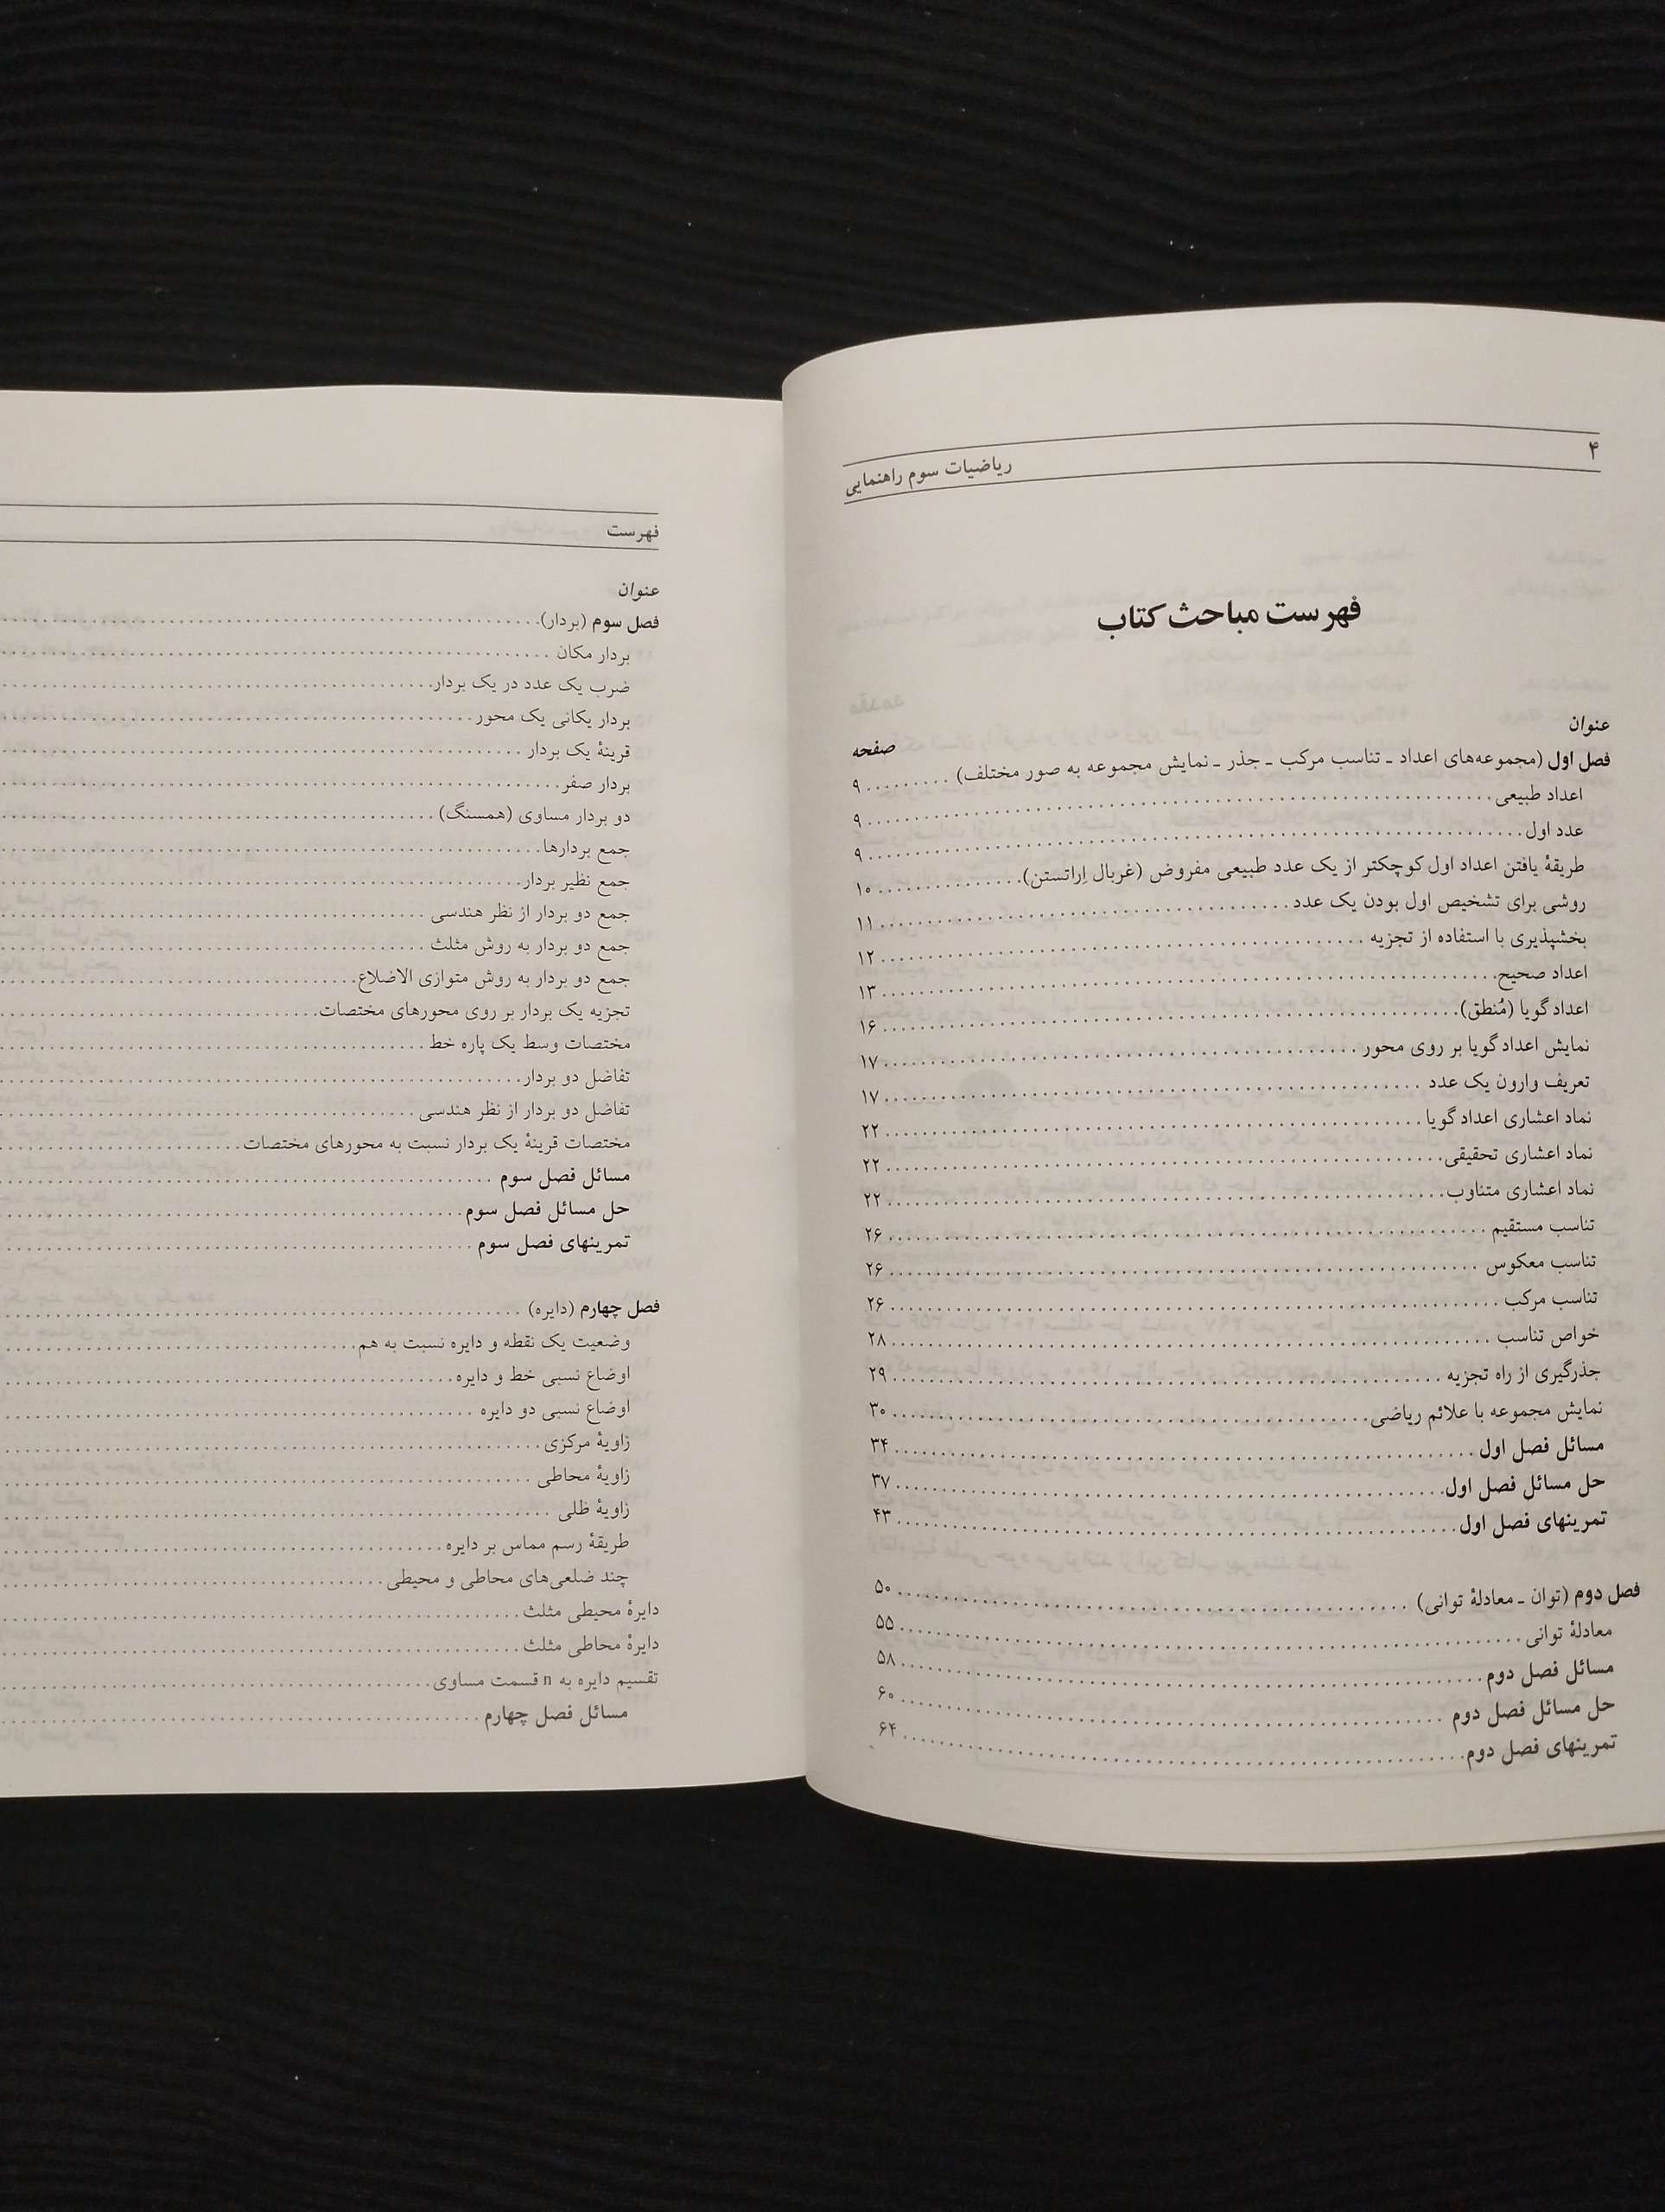 ۴
ریاضیات سوم راهنمایی
فهرست مباحث کتاب
عنوان
صفحه
فصل اول (مجموعه‌های اعداد ـ تناسب مرکب ـ جذر ـ نمایش مجموعه به صور مختلف) ......... ۹
اعداد طبیعی ......... ۹
عدد اول ......... ۹
طریقهٔ یافتن اعداد اول کوچکتر از یک عدد طبیعی مفروض (غربال اِراتستن) ......... ۱۰
روشی برای تشخیص اول بودن یک عدد ......... ۱۱
بخشپذیری با استفاده از تجزیه ......... ۱۲
اعداد صحیح ......... ۱۳
اعداد گویا (مُنطق) ......... ۱۶
نمایش اعداد گویا بر روی محور ......... ۱۷
تعریف وارون یک عدد ......... ۱۷
نماد اعشاری اعداد گویا ......... ۲۲
نماد اعشاری تحقیقی ......... ۲۲
نماد اعشاری متناوب ......... ۲۲
تناسب مستقیم ......... ۲۶
تناسب معکوس ......... ۲۶
تناسب مرکب ......... ۲۶
خواص تناسب ......... ۲۸
جذرگیری از راه تجزیه ......... ۲۹
نمایش مجموعه با علائم ریاضی ......... ۳۰
مسائل فصل اول ......... ۳۴
حل مسائل فصل اول ......... ۳۷
تمرینهای فصل اول ......... ۴۳
فصل دوم (توان ـ معادلهٔ توانی) ......... ۵۰
معادلهٔ توانی ......... ۵۵
مسائل فصل دوم ......... ۵۸
حل مسائل فصل دوم ......... ۶۰
تمرینهای فصل دوم ......... ۶۴
فهرست
عنوان
فصل سوم (بردار) .........
بردار مکان .........
ضرب یک عدد در یک بردار .........
بردار یکانی یک محور .........
قرینهٔ یک بردار .........
بردار صفر .........
دو بردار مساوی (همسنگ) .........
جمع بردارها .........
جمع نظیر بردار .........
جمع دو بردار از نظر هندسی .........
جمع دو بردار به روش مثلث .........
جمع دو بردار به روش متوازی الاضلاع .........
تجزیه یک بردار بر روی محورهای مختصات .........
مختصات وسط یک پاره خط .........
تفاضل دو بردار .........
تفاضل دو بردار از نظر هندسی .........
مختصات قرینهٔ یک بردار نسبت به محورهای مختصات .........
مسائل فصل سوم .........
حل مسائل فصل سوم .........
تمرینهای فصل سوم .........
فصل چهارم (دایره) .........
وضعیت یک نقطه و دایره نسبت به هم .........
اوضاع نسبی خط و دایره .........
اوضاع نسبی دو دایره .........
زاویهٔ مرکزی .........
زاویهٔ محاطی .........
زاویهٔ ظلی .........
طریقهٔ رسم مماس بر دایره .........
چند ضلعی‌های محاطی و محیطی .........
دایرهٔ محیطی مثلث .........
دایرهٔ محاطی مثلث .........
تقسیم دایره به n قسمت مساوی .........
مسائل فصل چهارم .........